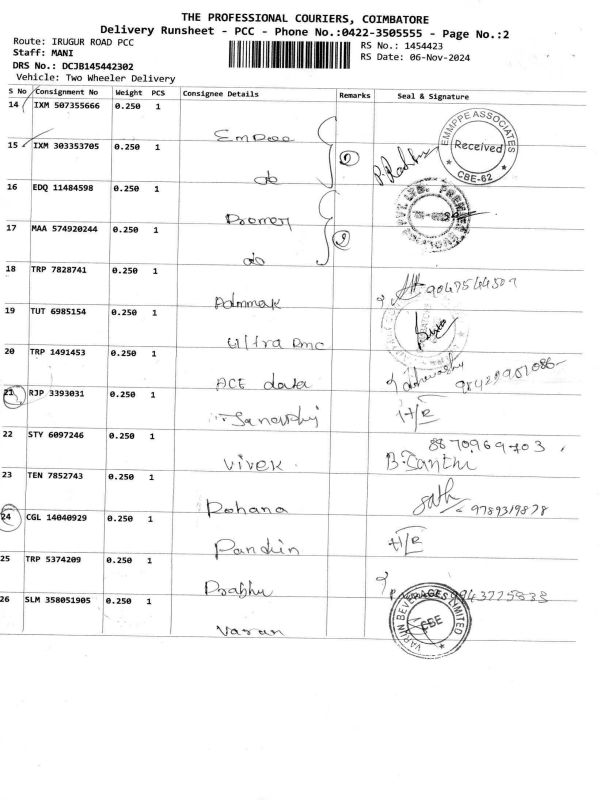 THE PROFESSIONAL COURIERS, COIMBATORE
Delivery Runsheet - PCC - Phone No.:0422-3505555 - Page No.:2
Route: IRUGUR ROAD PCC
RS No.: 1454423
Staff: MANI
RS Date: 06-Nov-2024
DRS No.: DCJB145442302
Vehicle: Two Wheeler Delivery
S No Consignment No Weight PCS Consignee Details Remarks Seal & Signature
14 IXM 507355666 0.250 1
EMMPPE ASSOCIATES Received CBE-62
15 IXM 303353705 0.250 1 do
16 EDQ 11484598 0.250 1 Premer
17 MAA 574920244 0.250 1 do
18 TRP 7828741 0.250 1 Admmak 9047544509
19 TUT 6985154 0.250 1 Ultra Rmc
20 TRP 1491453 0.250 1 ACE data
21 RJP 3393031 0.250 1 H/R
22 STY 6097246 0.250 1 Vivek 8870969703 B.Santhi
23 TEN 7852743 0.250 1 Rohana Sath 9789319878
24 CGL 14040929 0.250 1 Pandin H/R
25 TRP 5374209 0.250 1 Prabhu 9943775833
26 SLM 358051905 0.250 1 Varun VARUN BEVERAGES LIMITED CBE